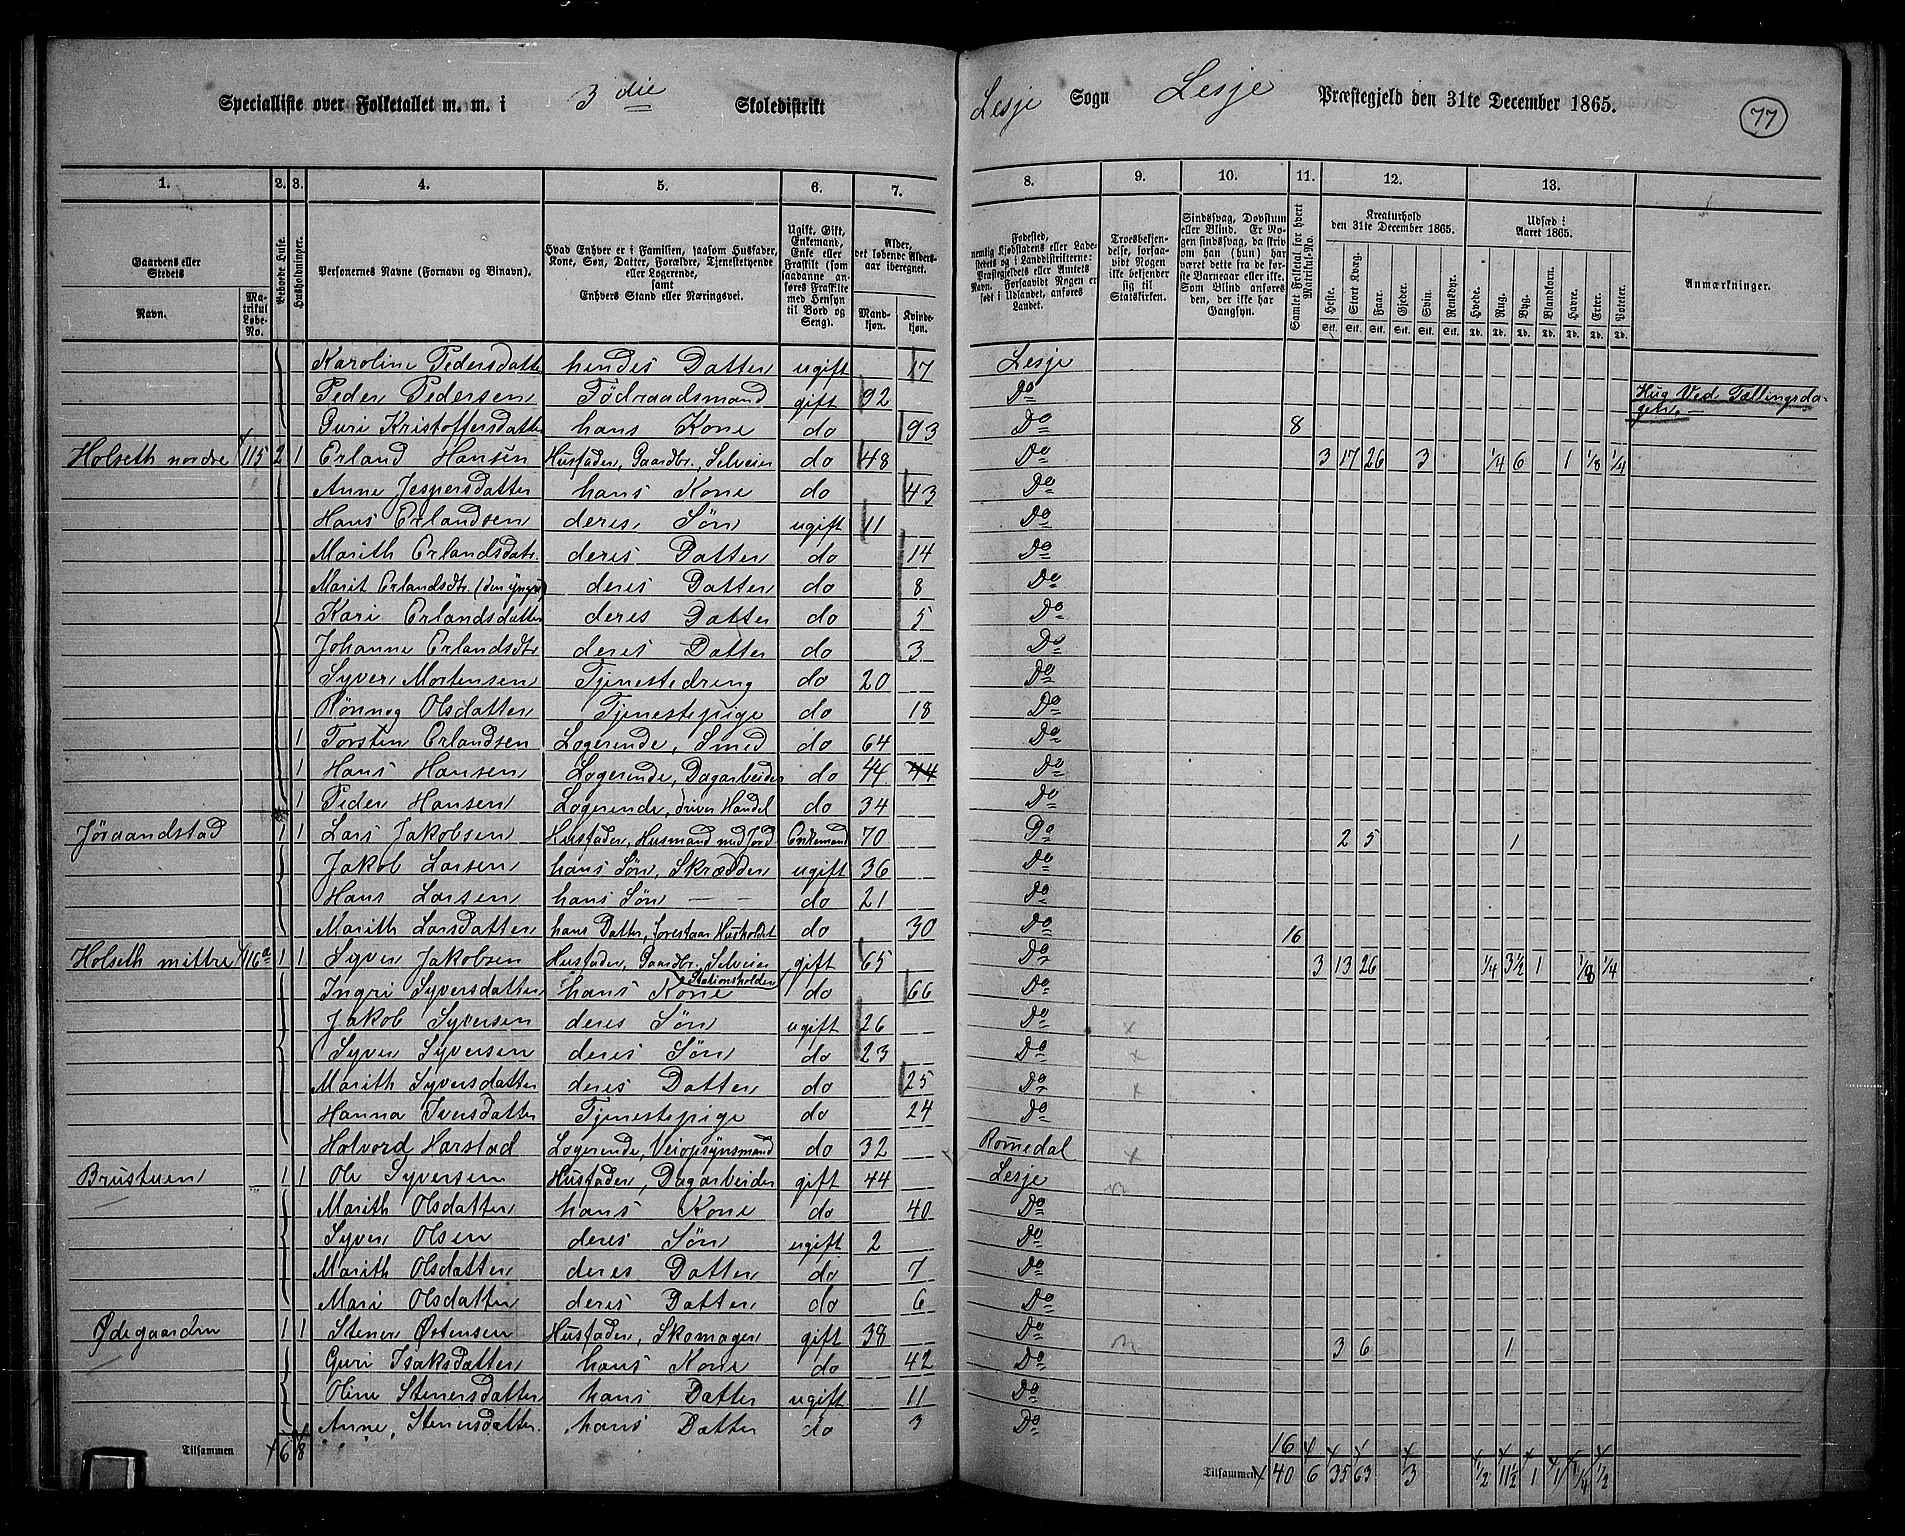 Specialliste over Folketallet m. m. i 3 die Skoledistrikt Lesje Sogn Lesje Præstegjeld den 31te December 1865. 77
1. 2. 3. 4. 5. 6. 7. 8. 9. 10. 11. 12. 13.
Gaardens eller Stedets
Navn. Matrikul Løbe-No.
Beboede Huse.
Husholdninger.
Personernes Navne (Fornavn og Binavn).
Hvad Enhver er i Familien, saasom Husfader, Kone, Søn, Datter, Forældre, Tjenestetyende eller Logerende, samt Enhvers Stand eller Næringsvei.
Ugift, Gift, Enkemand, Enke eller Fraskilt (som saadanne anføres Fraskilte med Hensyn til Bord og Seng).
Alder, det løbende Aldersaar iberegnet.
Mandkjøn. Kvindekjøn.
Fødested, nemlig Kjøbstadens eller Ladestedets og i Landdistrikterne: Præstegjeldets eller Amtets Navn. Forsaavidt Nogen er født i Udlandet, anføres Landet.
Troesbekjendelse, forsaavidt Nogen ikke bekjender sig til Statskirken.
Sindssvag, Døvstum eller Blind. Er Nogen sindssvag, da skriv om han (hun) har været dette fra de første Barneaar eller ikke. Som Blind anføres den, der ikke har Gangsyn.
Samlet Folketal for hvert Matrikul-No.
Kreaturhold den 31te December 1865.
Heste. Stort Kvæg. Faar. Gjeder. Svin. Rensdyr.
Stk. Stk. Stk. Stk. Stk. Stk.
Udsæd i Aaret 1865.
Hvede. Rug. Byg. Blandkorn. Havre. Erter. Poteter.
Td. Td. Td. Td. Td. Td. Td.
Anmærkninger.
Karoline Pedersdatter hendes Datter ugift 17 Lesje
Peder Pedersen Födraadsmand gift 92 Do
Guri Kristoffersdatter hans Kone do 93 Do 8
Holseth nordre 115 2 1 Erland Hansen Husfader, Gaardbr., Selveier do 48 Do 3 17 26 3 1/4 6 1 1/8 1/4
Anne Jespersdatter hans Kone do 43 Do
Hans Erlandsen deres Søn ugift 11 Do
Marith Erlandsdatr. deres Datter do 14 Do
Marit Erlandsdtr. (den yngre) deres Datter do 8 Do
Kari Erlandsdatter deres Datter do 5 Do
Johanne Erlandsdtr deres Datter do 3 Do
Syver Mortensen Tjenestedreng do 20 Do
Rønnog Olsdatter Tjenestepige do 18 Do
1 Torsten Erlandsen Logerende, Smed do 64 Do
1 Hans Hansen Logerende, Dagarbeider do 44 44 Do
1 Peder Hansen Logerende, driver Handel do 34 Do
Jøraandstad 1 1 Lars Jakobsen Husfader, Husmand med Jord Enkemand 70 Do 2 5 1
Jakob Larsen hans Søn, Skrædder ugift 36 Do
Hans Larsen hans Søn — — do 21 Do
Marith Larsdatter hans Datter, forestaar Husholdet do 30 Do 16
Holseth mittre 116a 1 1 Syver Jakobsen Husfader, Gaardbr. Selveier gift 65 Do 3 13 26 1/4 3 1/2 1 1/8 1/4
Stationsholder
Ingri Syversdatter hans Kone do 66 Do
Jakob Syversen deres Søn ugift 26 Do x
Syver Syversen deres Søn do 23 Do x
Marith Syversdatter deres Datter do 25 Do x
Hanna Iversdatter Tjenestepige do 24 Do
Holvord Harstad Logerende, Veiopsynsmand do 32 Romedal x
Brustuen 1 1 Ole Syversen Husfader, Dagarbeider gift 44 Lesje
Marith Olsdatter hans Kone do 40 Do
Syver Olsen deres Søn ugift 2 Do
Marith Olsdatter deres Datter do 7 Do
Mari Olsdatter deres Datter do 6 Do
Ødegaarden 1 1 Stener Østensen Husfader, Skomager gift 38 Do 3 6 1
Guri Isaksdatter hans Kone do 42 Do
Oline Stenersdatter hans Datter ugift 11 Do
Anne Stenersdatter hans Datter do 3 Do
16
Tilsammen 6 8 Tilsammen 40 6 35 63 3 1/2 11 1/2 1 1 1/4 1/2